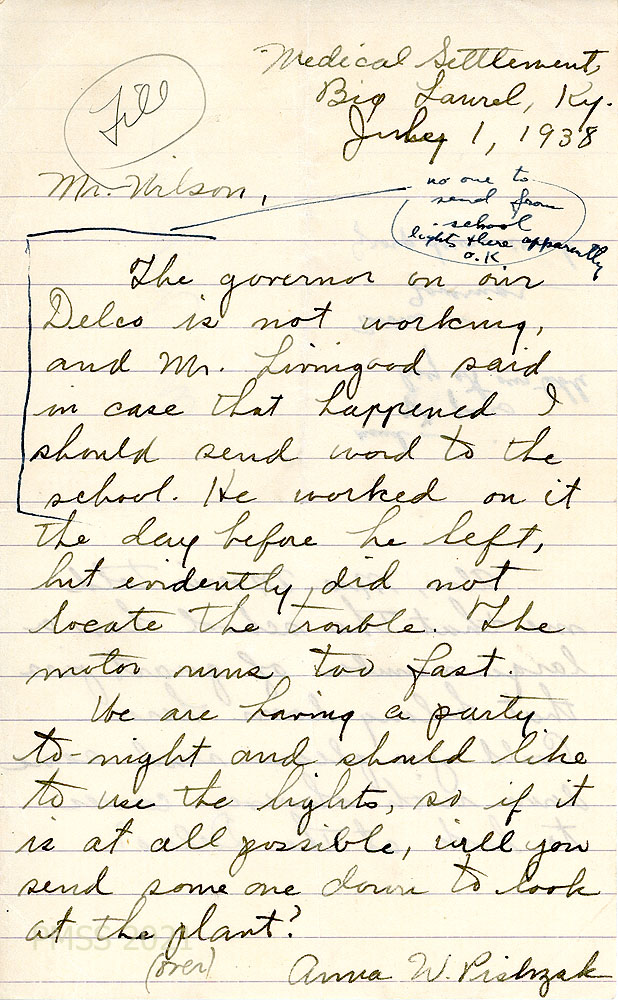 Medical Settlement
Big Laurel, Ky.
July 1, 1938
Mr. Wilson,
no one to
send from
school
lights there apparently
O.K
The governor on our
Delco is not working,
and Mr. Livingood said
in case that happened I
should send word to the
school. He worked on it
the day before he left,
but evidently did not
locate the trouble. The
motor runs too fast.
We are having a party
to-night and should like
to use the lights, so if it
is at all possible, will you
send some one down to look
at the plant?
(over)
Anna W.
PMSS 2021